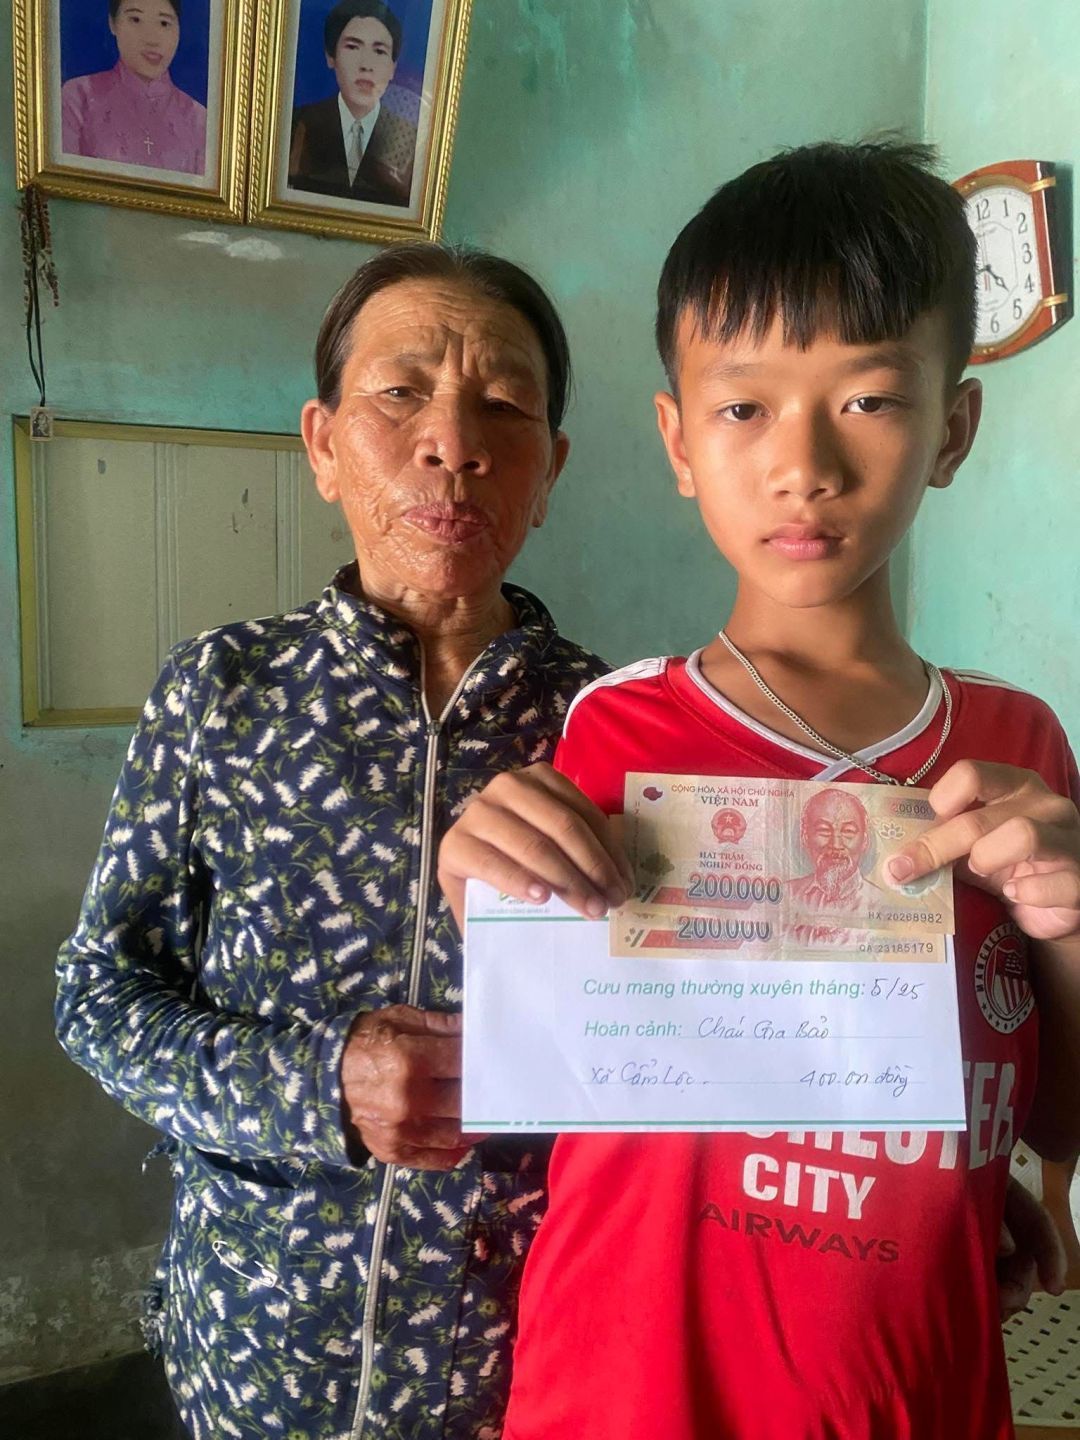 12
1
2
3
4
5
6
CỘNG HÒA XÃ HỘI CHỦ NGHĨA
VIỆT NAM
200000
HAI TRĂM
NGHÌN ĐỒNG
200000
HX 20268982
200.000
QA 23185179
Cưu mang thường xuyên tháng: 5/25
Hoàn cảnh: Cháu Gia Bảo
Xã Cẩm Lộc. 400.000 đồng
MANCHESTER
CITY
AIRWAYS